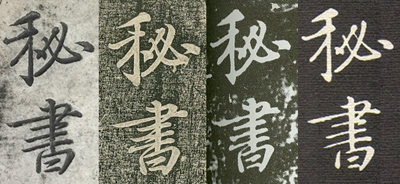 秘書
秘書
秘書
秘書